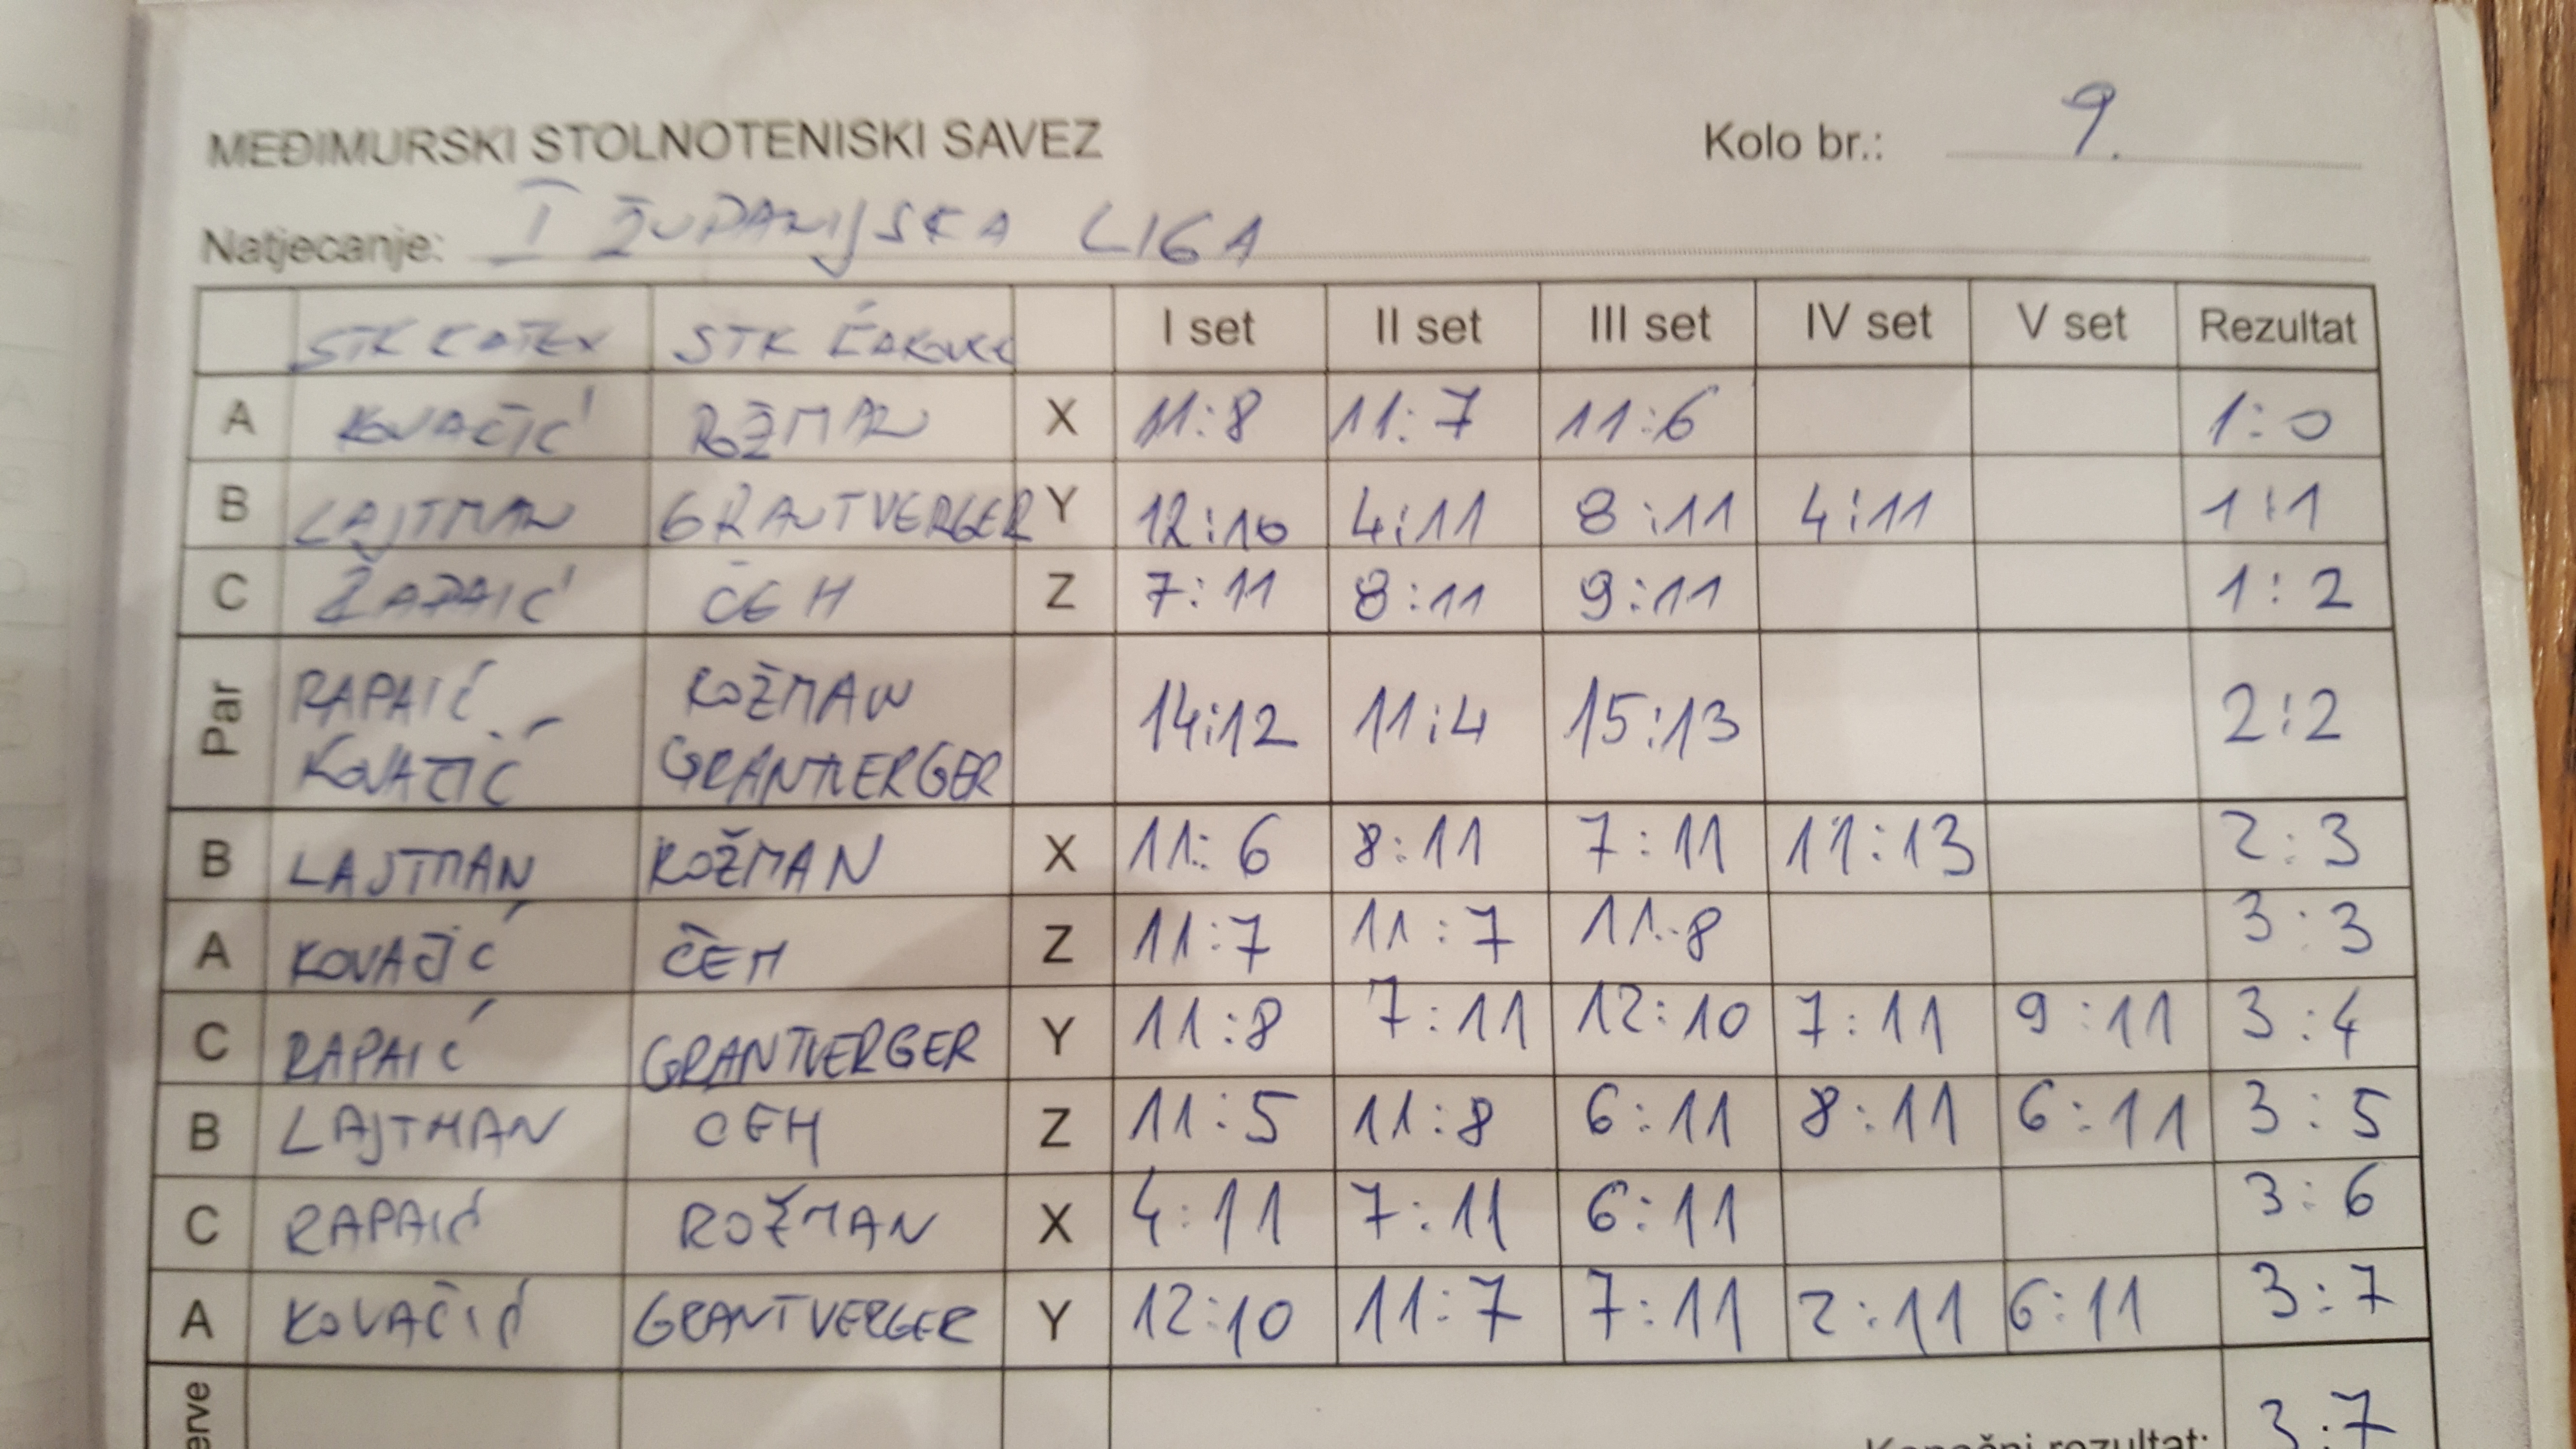 MEĐIMURSKI STOLNOTENISKI SAVEZ Kolo br.: 9.
Natjecanje: I ŽUPANIJSKA LIGA
STK STK I set II set III set IV set V set Rezultat
A KOVAČIĆ ROŽMAN X 11:8 11:7 11:6 1:0
B LAJTMAN GRANTVERGER Y 12:10 4:11 8:11 4:11 1:1
C ČEH Z 7:11 8:11 9:11 1:2
Par RAPAIĆ ROŽMAN 14:12 11:4 15:13 2:2
KOVAČIĆ GRANTVERGER
B LAJTMAN ROŽMAN X 11:6 8:11 7:11 11:13 2:3
A KOVAČIĆ ČEH Z 11:7 11:7 11:8 3:3
C RAPAIĆ GRANTVERGER Y 11:8 7:11 12:10 7:11 9:11 3:4
B LAJTMAN CEH Z 11:5 11:8 6:11 8:11 6:11 3:5
C RAPAIĆ ROŽMAN X 4:11 7:11 6:11 3:6
A KOVAČIĆ GRANTVERGER Y 12:10 11:7 7:11 2:11 6:11 3:7
erve Konačni rezultat: 3:7